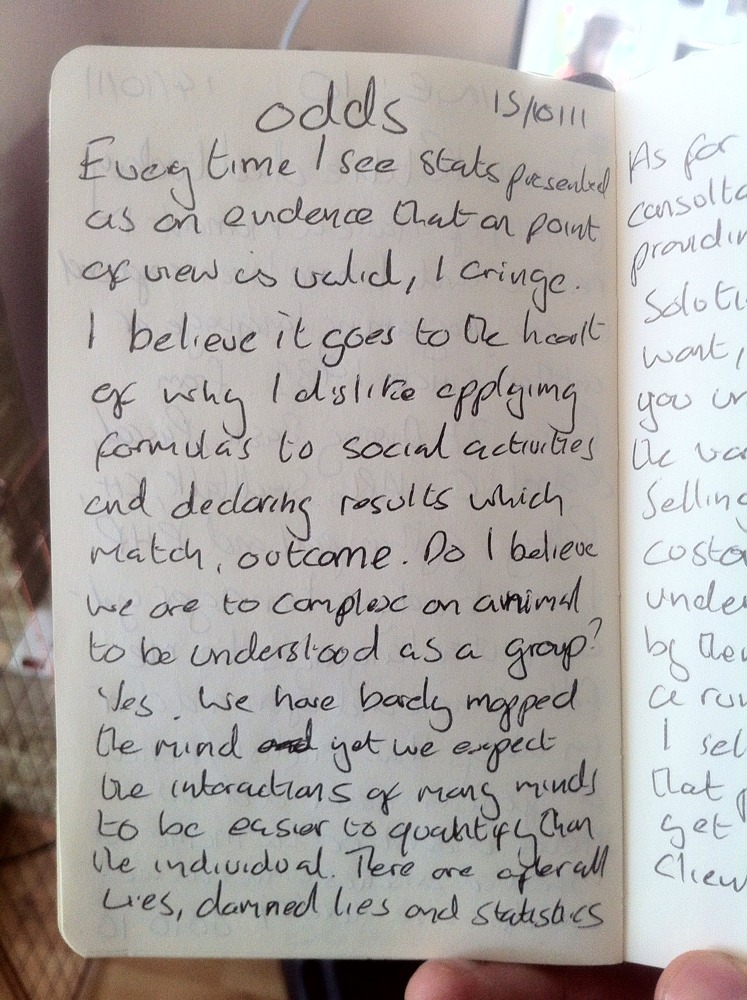 odds 15/10/11
Every time I see stats presented
as an evidence that an point
of view is valid, I cringe.
I believe it goes to the heart
of why I dislike applying
formulas to social activities
and declaring results which
match, outcome. Do I believe
we are to complex an animal
to be understood as a group?
Yes. We have barely mapped
the mind and yet we expect
the interactions of many minds
to be easier to quantify than
the individual. There are after all
Lies, damned lies and statistics
As for
providin
Soluti
want,
you
the
Selling
custo
under
by then
a
I sel
that p
get
Clien